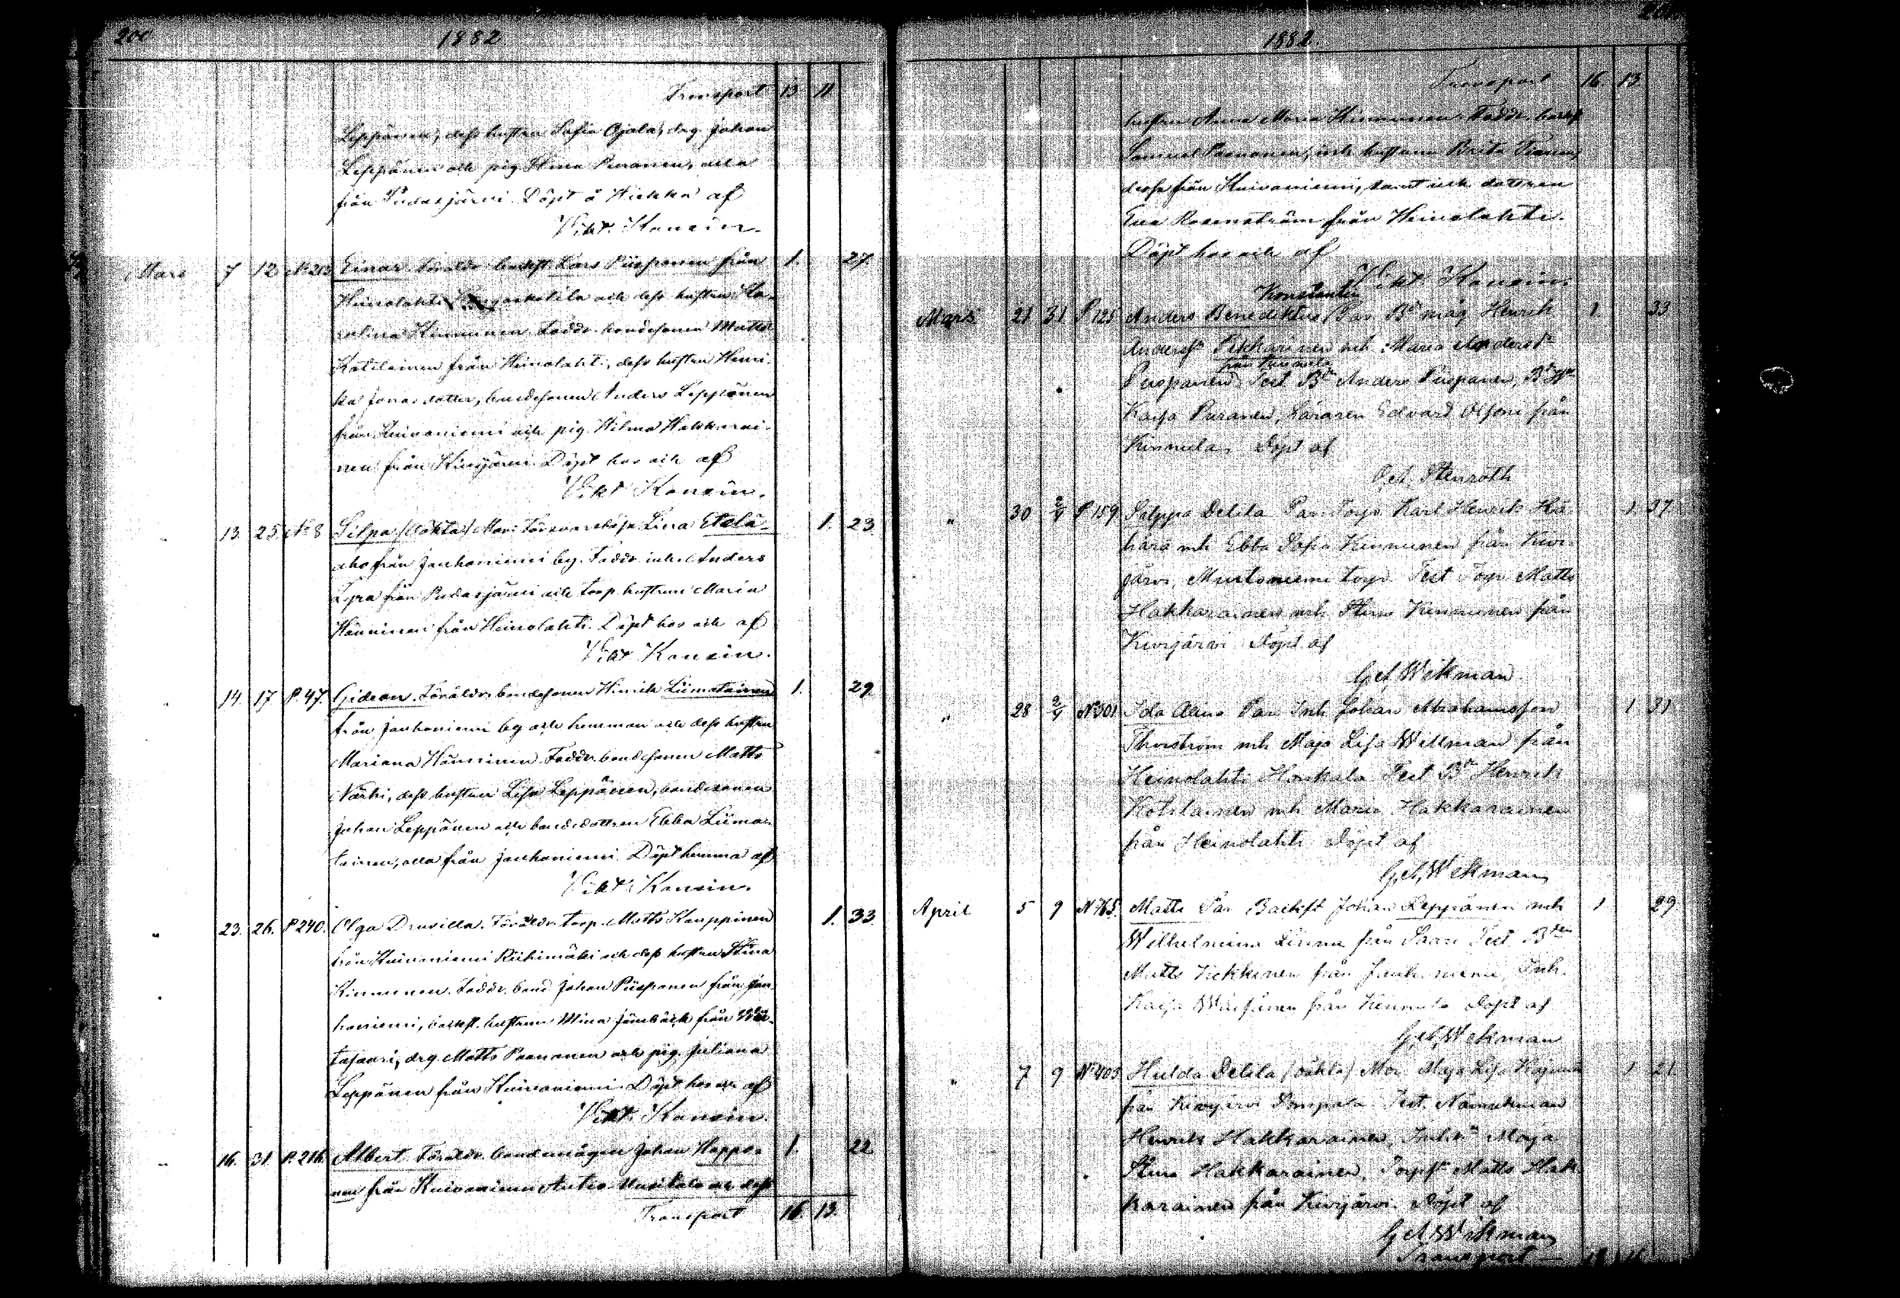 200
1882
Transport 13 11
Leppänen, dess hustru Sofia Ojala, drg. Johan
Leppänen och pig. Stina Puranen, alla
från Pudasjärvi. Döpt å Hiekka af
Vikt. Konsin.
Mars 7 12 Einar. Föräldr. backst. Lars Piispanen från 1. 27.
Heinolahti och dess hustru Ka-
rolina Kinnunen. Faddr. bondesonen Matts
Kotilainen från Heinolahti, dess hustru Henri-
ka Jonas dotter, bondesonen Anders Leppänen
från Kuivaniemi och pig. Hilma Hakkarai-
nen från Kivijärvi. Döpt hos och af
Vikt. Konsin.
13. 25. No 8 Silpa (oäkta) Mor: Lisa Etelä- 1. 23.
aho från Jauhoniemi by. Faddr. inh. Anders
från Pudasjärvi och torp. hustrun Maria
Hänninen från Heinolahti. Döpt hos och af
Vikt. Konsin.
14. 17. P. 47. Gideon. Föräldr. bondesonen Hinrik Liimatainen 1. 29.
från Jauhoniemi by och hemman och dess hustru
Mariana Hänninen. Faddr. bondesonen Matts
Närhi, dess hustru Lisa Leppänen, bondesonen
Johan Leppänen och bondedottren Ebba Liima-
tainen, alla från Jauhoniemi. Döpt hemma af
Vikt. Konsin.
" 23. 26. P 240. Olga Drusilla. Föräldr. torp. Matts Kauppinen 1. 33.
från Kuivaniemi Riihimäki och dess hustru Stina
Kinnunen. Faddr. bond. Johan Piispanen från Jau-
honiemi, backst. hustrun Mina från
drg. Matts Paananen och pig. Juliana
Leppänen från Kuivaniemi. Döpt hos och af
Vikt. Konsin.
16. 31. P. 216. Albert. Föräldr. bondemågen Johan Happo- 1. 22
nen från Kuivaniemi och dess
Transport 16. 13.
201
1882.
Transport 16. 13
hustru Anna Maria Kinnunen. Faddr. backst.
Samuel Paananen, och hustrun Brita
dessa från Kuivaniemi, samt inh. dottren
Eva Rosenström från Heinolahti.
Döpt hos och af
Vikt Konsin.
Konstantin
Mars 21 31 P 125 Anders Benediktus Par. Bd måg Henrik 1. 33
Andersn Pekkarinen mh Maria Andersdr
från Kinnula
Piispanen Test Bdn Anders Piispanen, Bd Hn
Kaisa Puranen, Läraren Edvard från
Kinnula. Döpt af
O. A. Stenroth
" 30 2/4 P 159 Salppa Delila Par. Torp. Karl Henrik Hä- 1 37.
härä mh Ebba Sofia Kinnunen från Kivi-
järvi, Muutoniemi torp. Test Torp. Matts
Hakkarainen mh Stina Kinnunen från
Kivijärvi Döpt af
G. A. Wikman
" 28 2/4 No 301 Ida Alina Par. Inh Johan Abrahamsson 1 31
Thorström mh Maja Lisa Willman från
Heinolahti Honkala Test Bdn Henrik
Kotilainen mh Maria Hakkarainen
från Heinolahti Döpt af
G. A. Wikman
April 5 9 No 165. Matts Par Backst Johan Leppänen mh 1 29
Wilhelmina Linna från Saari Test Bdn
Matts från Jauhoniemi, Inh.
Kaisa från Kinnula Döpt af
G. A. Wikman
" 7 9 No 403 Hulda Delila (oäkta) Mor Maja Lisa 1 21
från Kivijärvi Test. Nämndeman
Henrik Hakkarainen, Maja
Stina Hakkarainen, Matts Hak-
karainen från Kivijärvi. Döpt af
G. A. Wikman
Transport